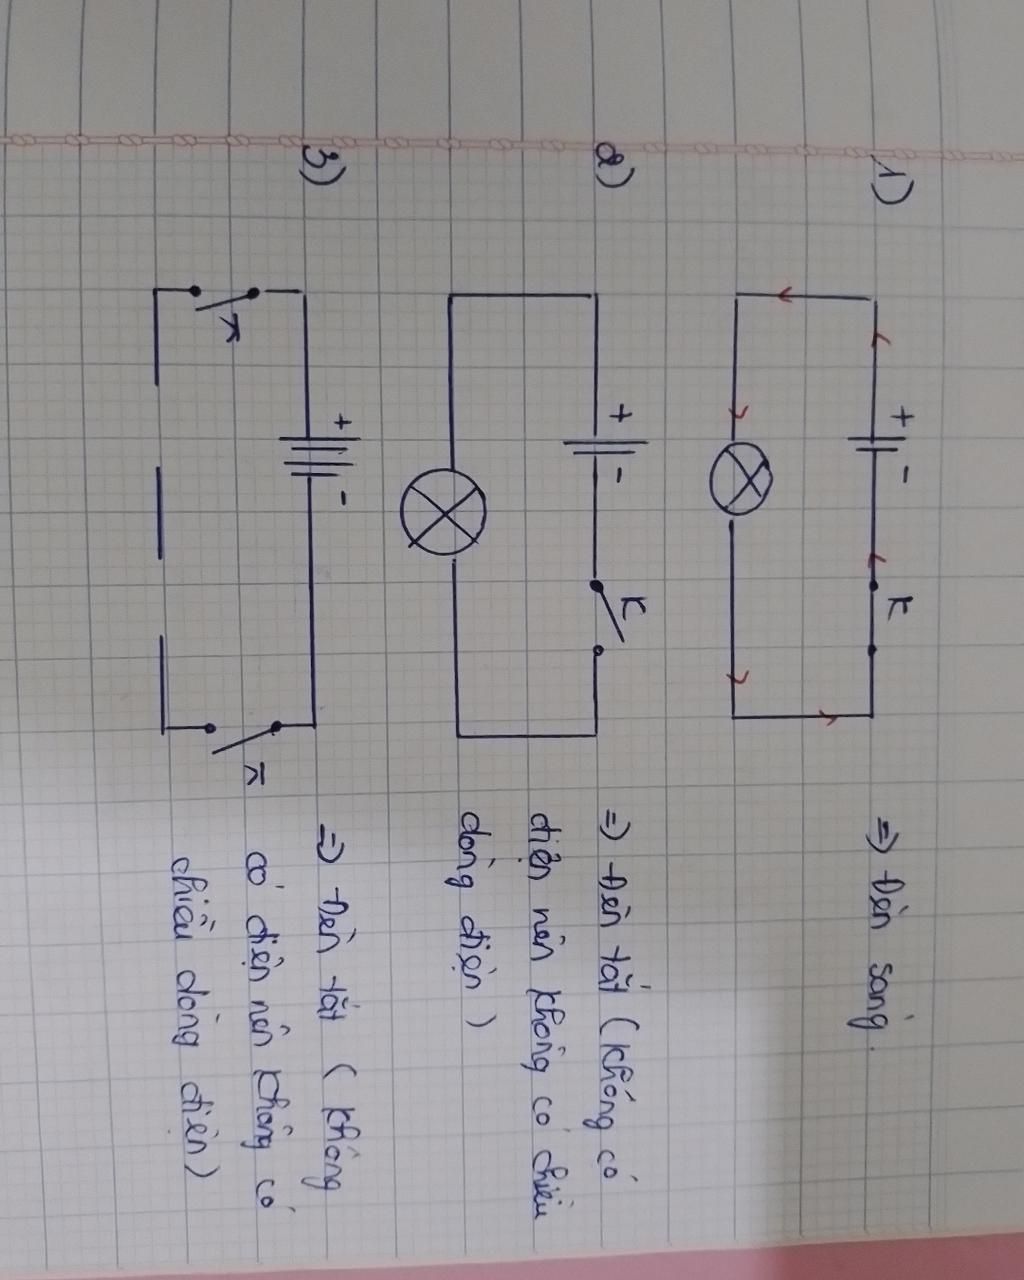 1)
+ -
K
=) Đèn sáng.
2)
+ -
K
=) Đèn tắt (không có
điện nên không có chiều
dòng điện)
3)
+ -
K
K
=) Đèn tắt (không
có điện nên không có
chiều dòng điện)